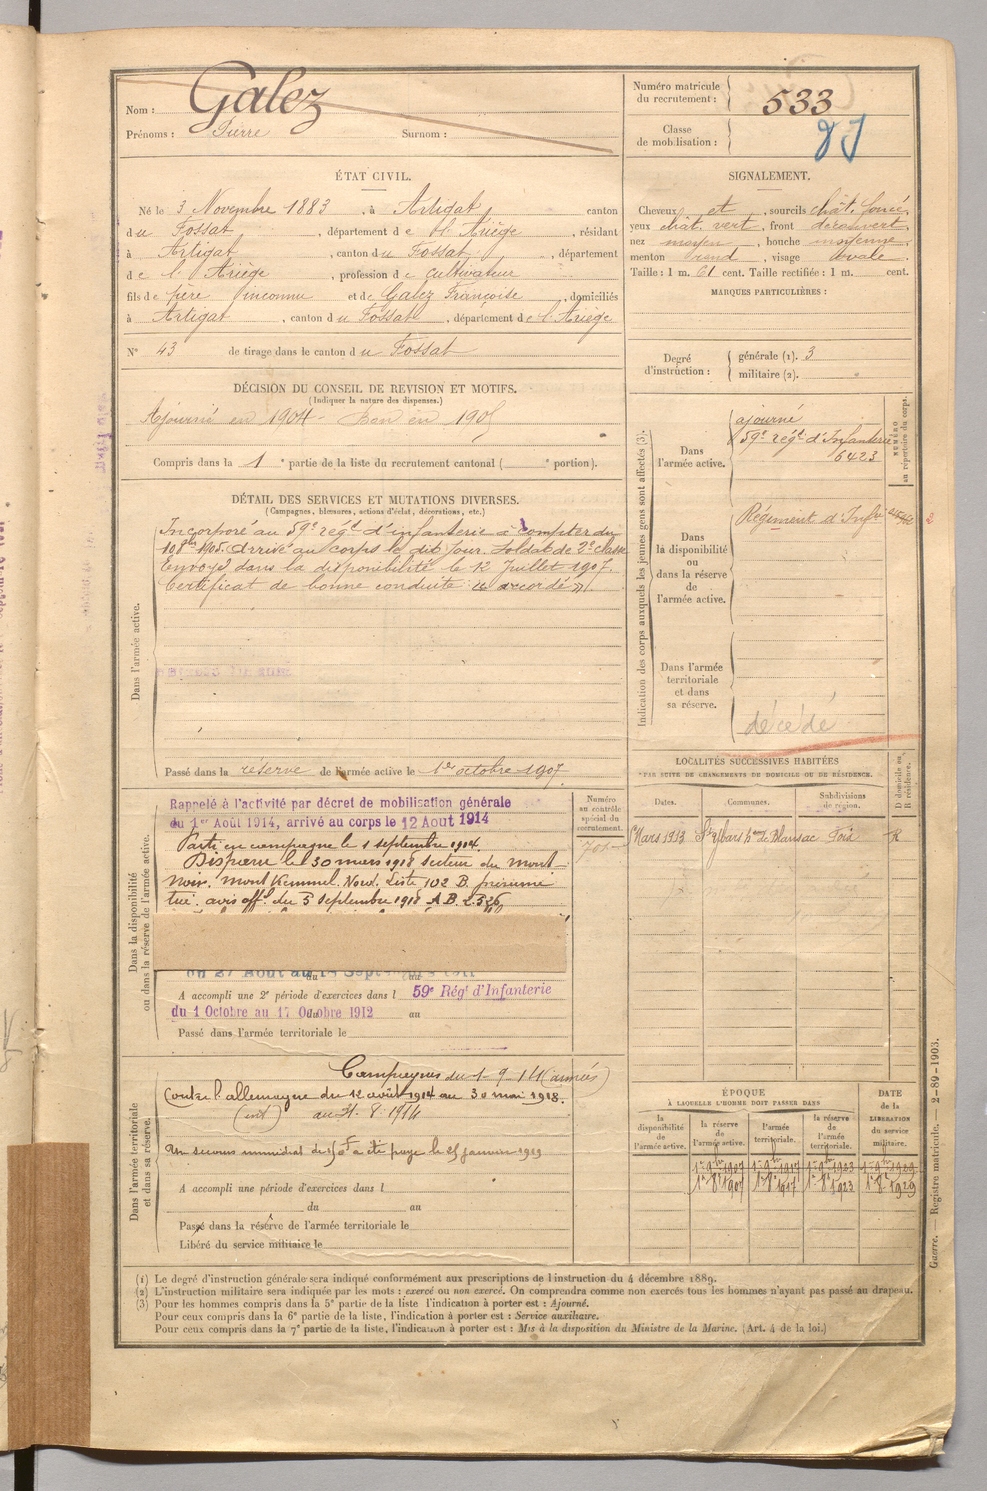 Nom : Galez
Prénoms : Pierre Surnom :
Numéro matricule du recrutement : 533
Classe de mobilisation :
ÉTAT CIVIL.
Né le 3 Novembre 1883, à Artigat, canton
du Fossat, département de l'Ariège, résidant
à Artigat, canton du Fossat, département
de l'Ariège, profession de cultivateur
fils de père inconnu et de Galez Françoise, domiciliés
à Artigat, canton du Fossat, département de l'Ariège
N° 43 de tirage dans le canton du Fossat
SIGNALEMENT.
Cheveux et, sourcils chât. foncé,
yeux chât. vert, front découvert,
nez moyen, bouche moyenne,
menton rond, visage ovale.
Taille : 1 m. 61 cent. Taille rectifiée : 1 m. cent.
MARQUES PARTICULIÈRES :
Degré d'instruction : générale (1). 3
militaire (2).
DÉCISION DU CONSEIL DE REVISION ET MOTIFS.
(Indiquer la nature des dispenses.)
Ajourné en 1904 Bon en 1905
Compris dans la 1e partie de la liste du recrutement cantonal ( e portion).
DÉTAIL DES SERVICES ET MUTATIONS DIVERSES.
(Campagnes, blessures, actions d'éclat, décorations, etc.)
Dans l'armée active.
Incorporé au 59e régt d'infanterie à compter du
1905. Arrivé au corps le dit jour. Soldat de 2e classe
Envoyé dans la disponibilité le 12 Juillet 1907.
Certificat de bonne conduite « accordé ».
Passé dans la réserve de l'armée active le 1er octobre 1907
Indication des corps auxquels les jeunes gens sont affectés (3).
NUMÉRO au répertoire du corps.
Dans l'armée active.
ajourné
59e régt d'Infanterie
6423
Dans la disponibilité ou dans la réserve de l'armée active.
Régiment d'Infie
Dans l'armée territoriale et dans sa réserve.
décédé
LOCALITÉS SUCCESSIVES HABITÉES
PAR SUITE DE CHANGEMENTS DE DOMICILE OU DE RÉSIDENCE.
Dates. Communes. Subdivisions de région. D domicile ou R résidence.
Mars 1913 Foix R
Dans la disponibilité ou dans la réserve de l'armée active.
Numéro au contrôle spécial du recrutement.
Rappelé à l'activité par décret de mobilisation générale
du 1er Août 1914, arrivé au corps le 12 Aout 1914
Parti en campagne le 1 septembre 1914.
Disparu le 30 mars 1918 secteur du mont
noir. mont Kemmel. Nord. Liste 102 B. présumé
tué. avis offl. du 5 septembre 1918 A.B. 2526
A accompli une 2e période d'exercices dans l 59e Régt d'Infanterie
du 1 Octobre au 17 Octobre 1912 au
Passé dans l'armée territoriale le
Dans l'armée territoriale et dans sa réserve.
Campagnes du 1-9-14 (armées)
Contre l'allemagne du 12 août 1914 au 30 mai 1918.
(int) au 31-8-1914
Un secours immédiat de 150f a été payé le 25 janvier 1919
A accompli une période d'exercices dans l
du au
Passé dans la réserve de l'armée territoriale le
Libéré du service militaire le
ÉPOQUE
À LAQUELLE L'HOMME DOIT PASSER DANS
DATE de la LIBÉRATION du service militaire.
la disponibilité de l'armée active. la réserve de l'armée active. l'armée territoriale. la réserve de l'armée territoriale.
1er 9bre 1907 1er 9bre 1917 1er 9bre 1923 1er 9bre 1929
1er 8bre 1907 1er 8bre 1917 1er 8bre 1923 1er 8bre 1929
(1) Le degré d'instruction générale sera indiqué conformément aux prescriptions de l'instruction du 4 décembre 1889.
(2) L'instruction militaire sera indiquée par les mots : exercé ou non exercé. On comprendra comme non exercés tous les hommes n'ayant pas passé au drapeau.
(3) Pour les hommes compris dans la 5e partie de la liste l'indication à porter est : Ajourné.
Pour ceux compris dans la 6e partie de la liste, l'indication à porter est : Service auxiliaire.
Pour ceux compris dans la 7e partie de la liste, l'indication à porter est : Mis à la disposition du Ministre de la Marine. (Art. 4 de la loi.)
Guerre. — Registre matricule. — 2-89-1903.